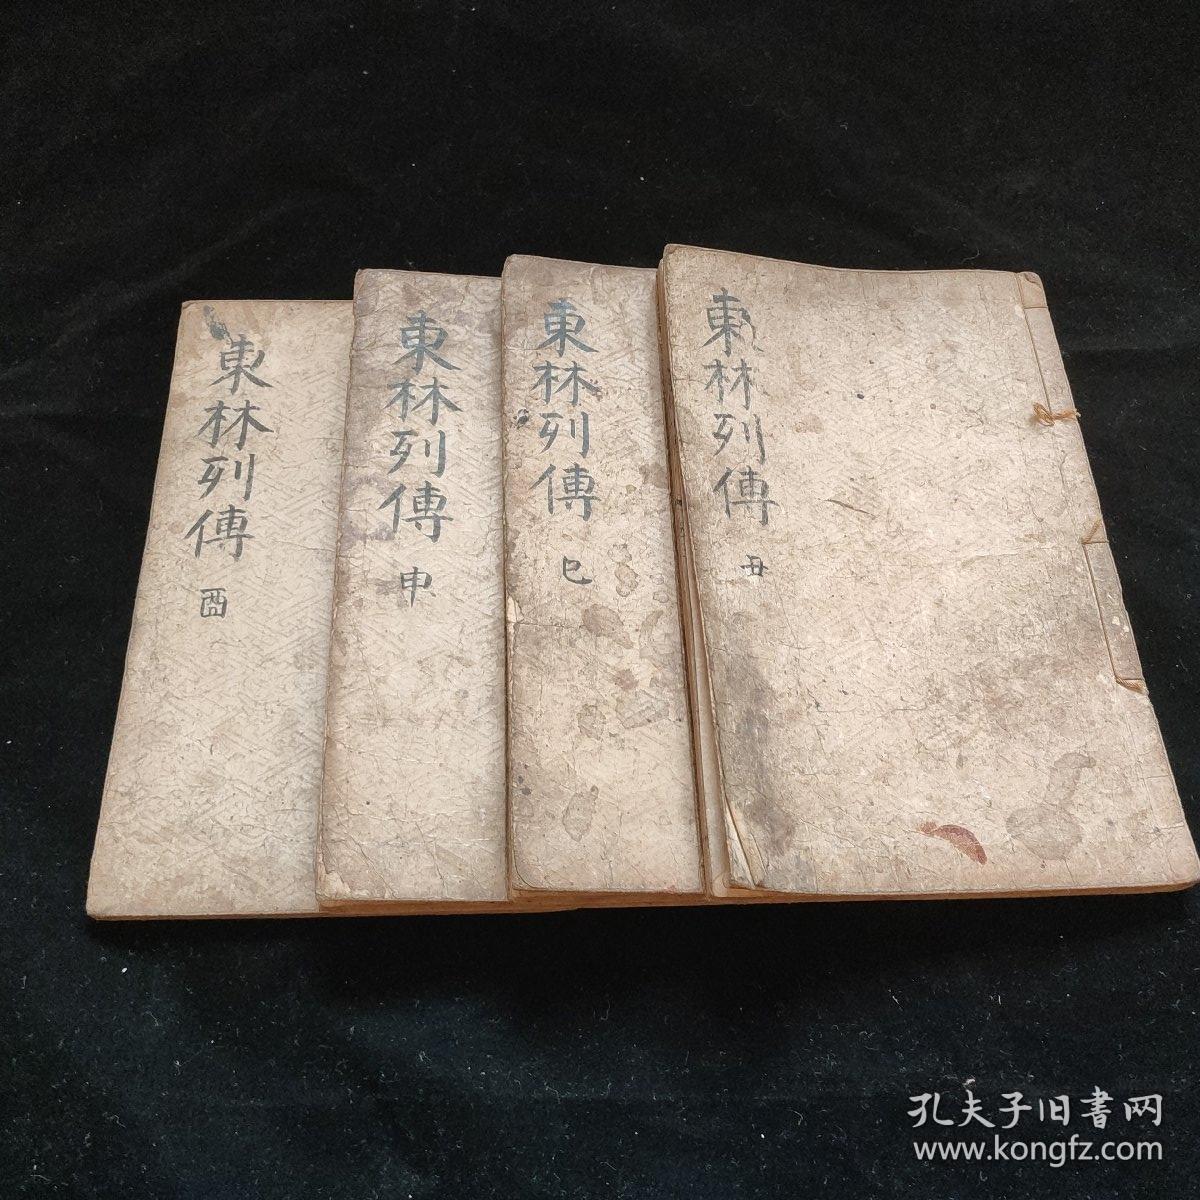 東林列傳 丑
東林列傳 巳
東林列傳 申
東林列傳 酉
孔夫子旧書网
www.kongfz.com